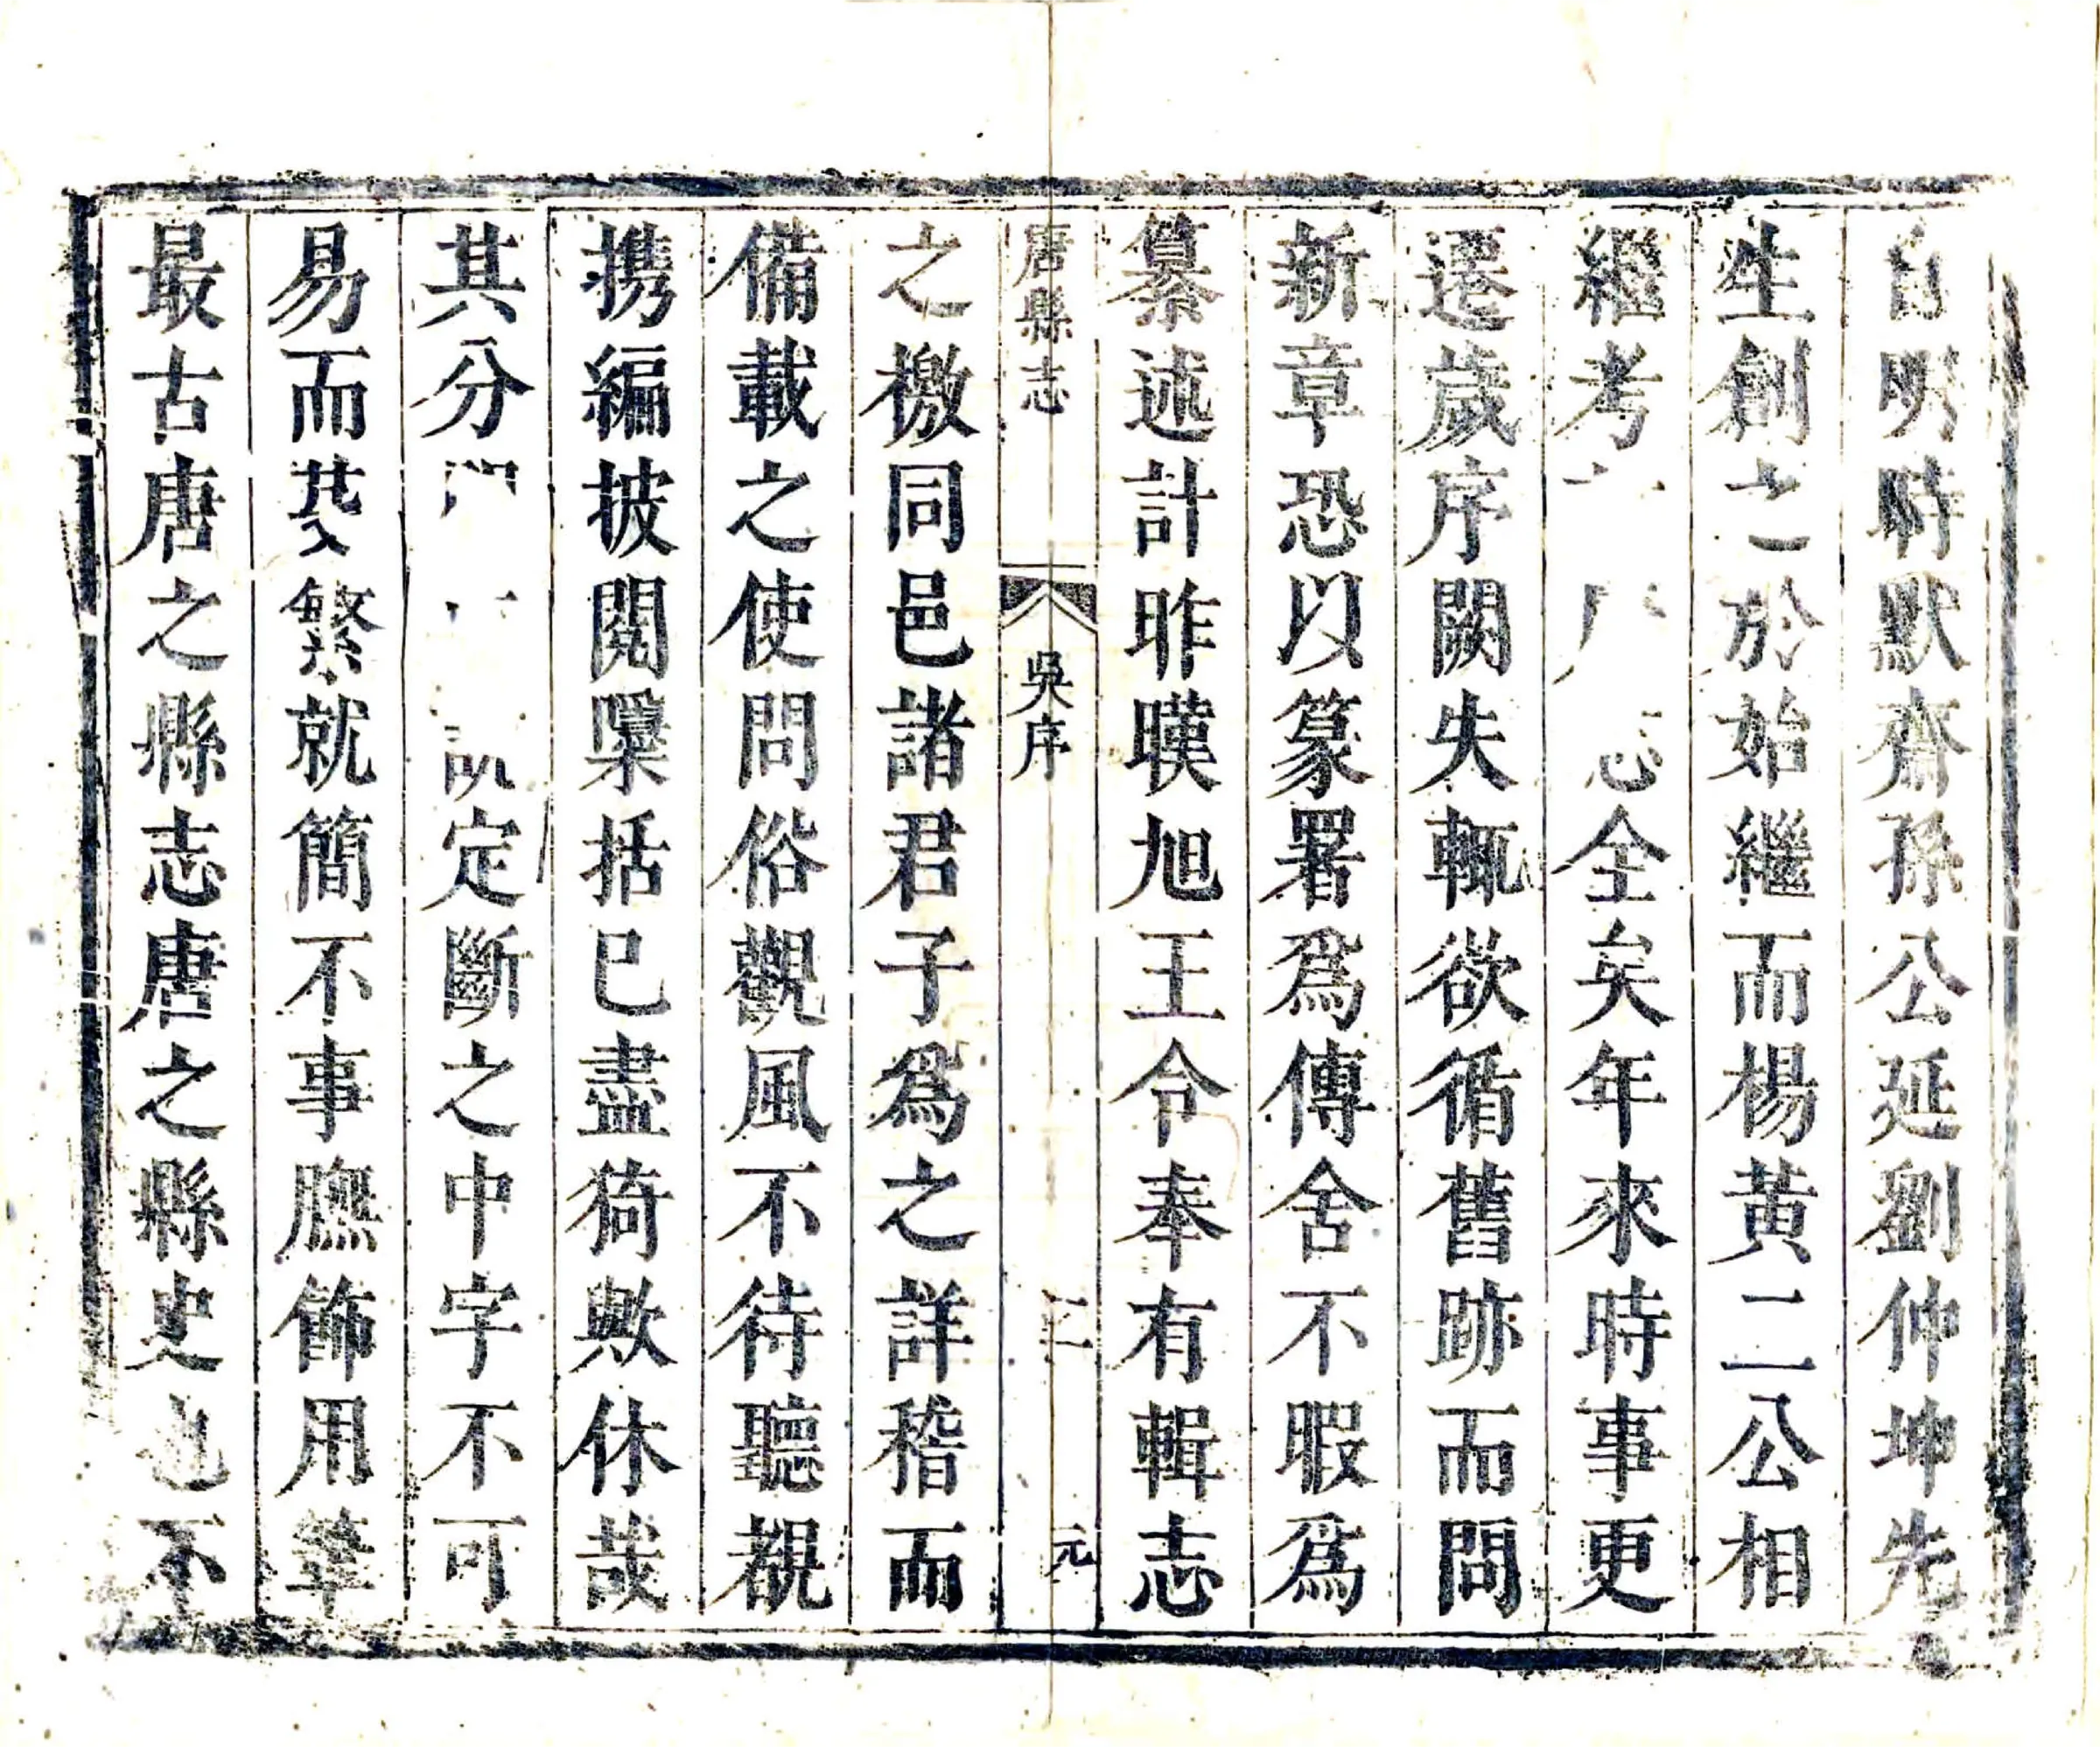 自明時默齋孫公延劉仲坤先
生創之於始繼而楊黃二公相
繼考志全矣年來時事更
遷歲序闕失輒欲循舊跡而問
新章恐以篆署爲傳舍不暇爲
纂述計昨暵旭王令奉有輯志
唐縣志 吳序 二 元
之檄同邑諸君子爲之詳稽而
備載之使問俗觀風不待聽覩
携編披閱檃括已盡猗歟休哉
其分門定斷之中字不可
易而芟繁就簡不事膴飾用筆
最古唐之縣志唐之縣史也不